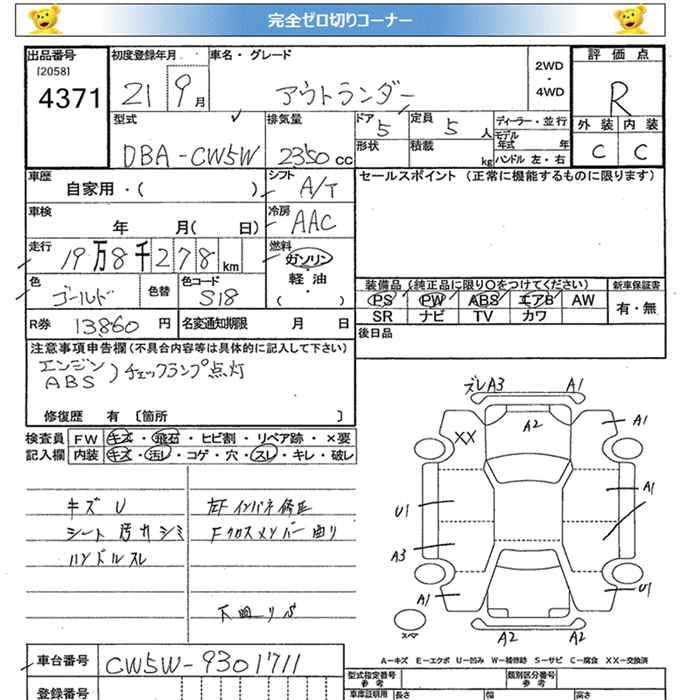 完全ゼロ切りコーナー
出品番号 初度登録年月 車名・グレード 2WD 評価点
[2058] 4371 21 9月 アウトランダー 4WD R
型式 排気量 ドア 5 定員 5人 ディーラー・並行 外装 内装
DBA-CW5W 2350cc 形状 積載 kg モデル年式 年 ハンドル 左・右 C C
車歴 自家用・( ) シフト A/T セールスポイント (正常に機能するものに限ります)
車検 年 月( 日) 冷房 AAC
走行 19万8千278km 燃料 ガソリン
軽・油
( ・ )
色 ゴールド 色替 色コード S18
装備品 (純正品に限り○をつけてください) 新車保証書
PS PW ABS エアB AW 有・無
SR ナビ TV カワ
R券 13860円 名変通知期限 月 日 後日品
注意事項申告欄(不具合内容等は具体的に記入して下さい)
エンジン
ABS )チェックランプ点灯
修復歴 有 〔箇所 〕
検査員 FW キズ・飛石・ヒビ割・リペア跡・×要
記入欄 内装 キズ・汚レ・コゲ・穴・スレ・キレ・破レ
キズ U
シート 汚れ シミ
ハンドル スレ
左F インパネ修正
Fクロスメンバー曲り
下回りS
ズレA3 A1
A2 A1
XX
U1 A1
A3
A1 U1
A2 A2
スペア
A—キズ E—エクボ U—凹み W—補修跡 S—サビ C—腐食 XX—交換済
車台番号 CW5W-9301711
登録番号
型式指定番号 参考 類別区分番号 参考
車庫証明用 長さ 幅 高さ